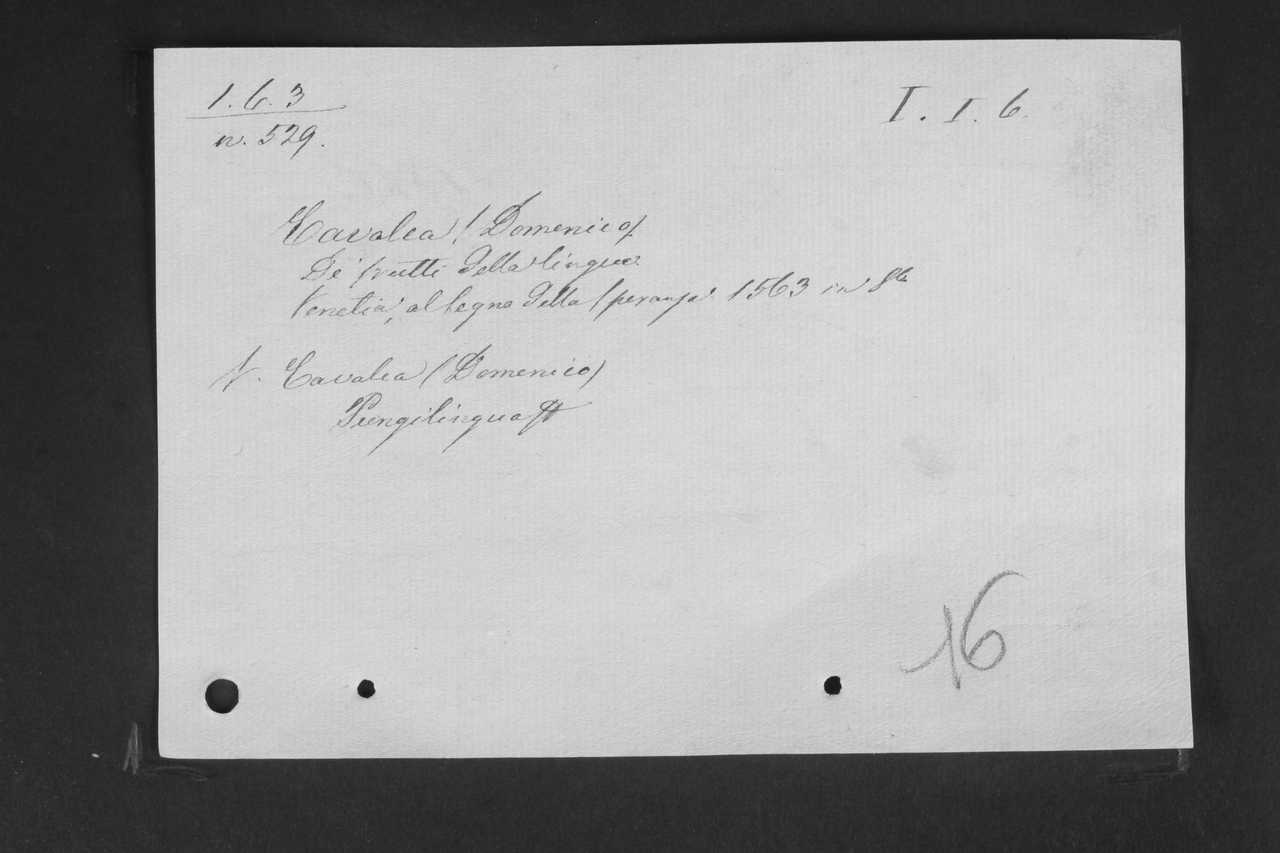 1. 6. 3
n. 529.
I. I. 6.
Cavalca (Domenico)
De' frutti della lingua
Venetia, al segno della speranza 1563 in 8º
V. Cavalca (Domenico)
Pungilingua
16